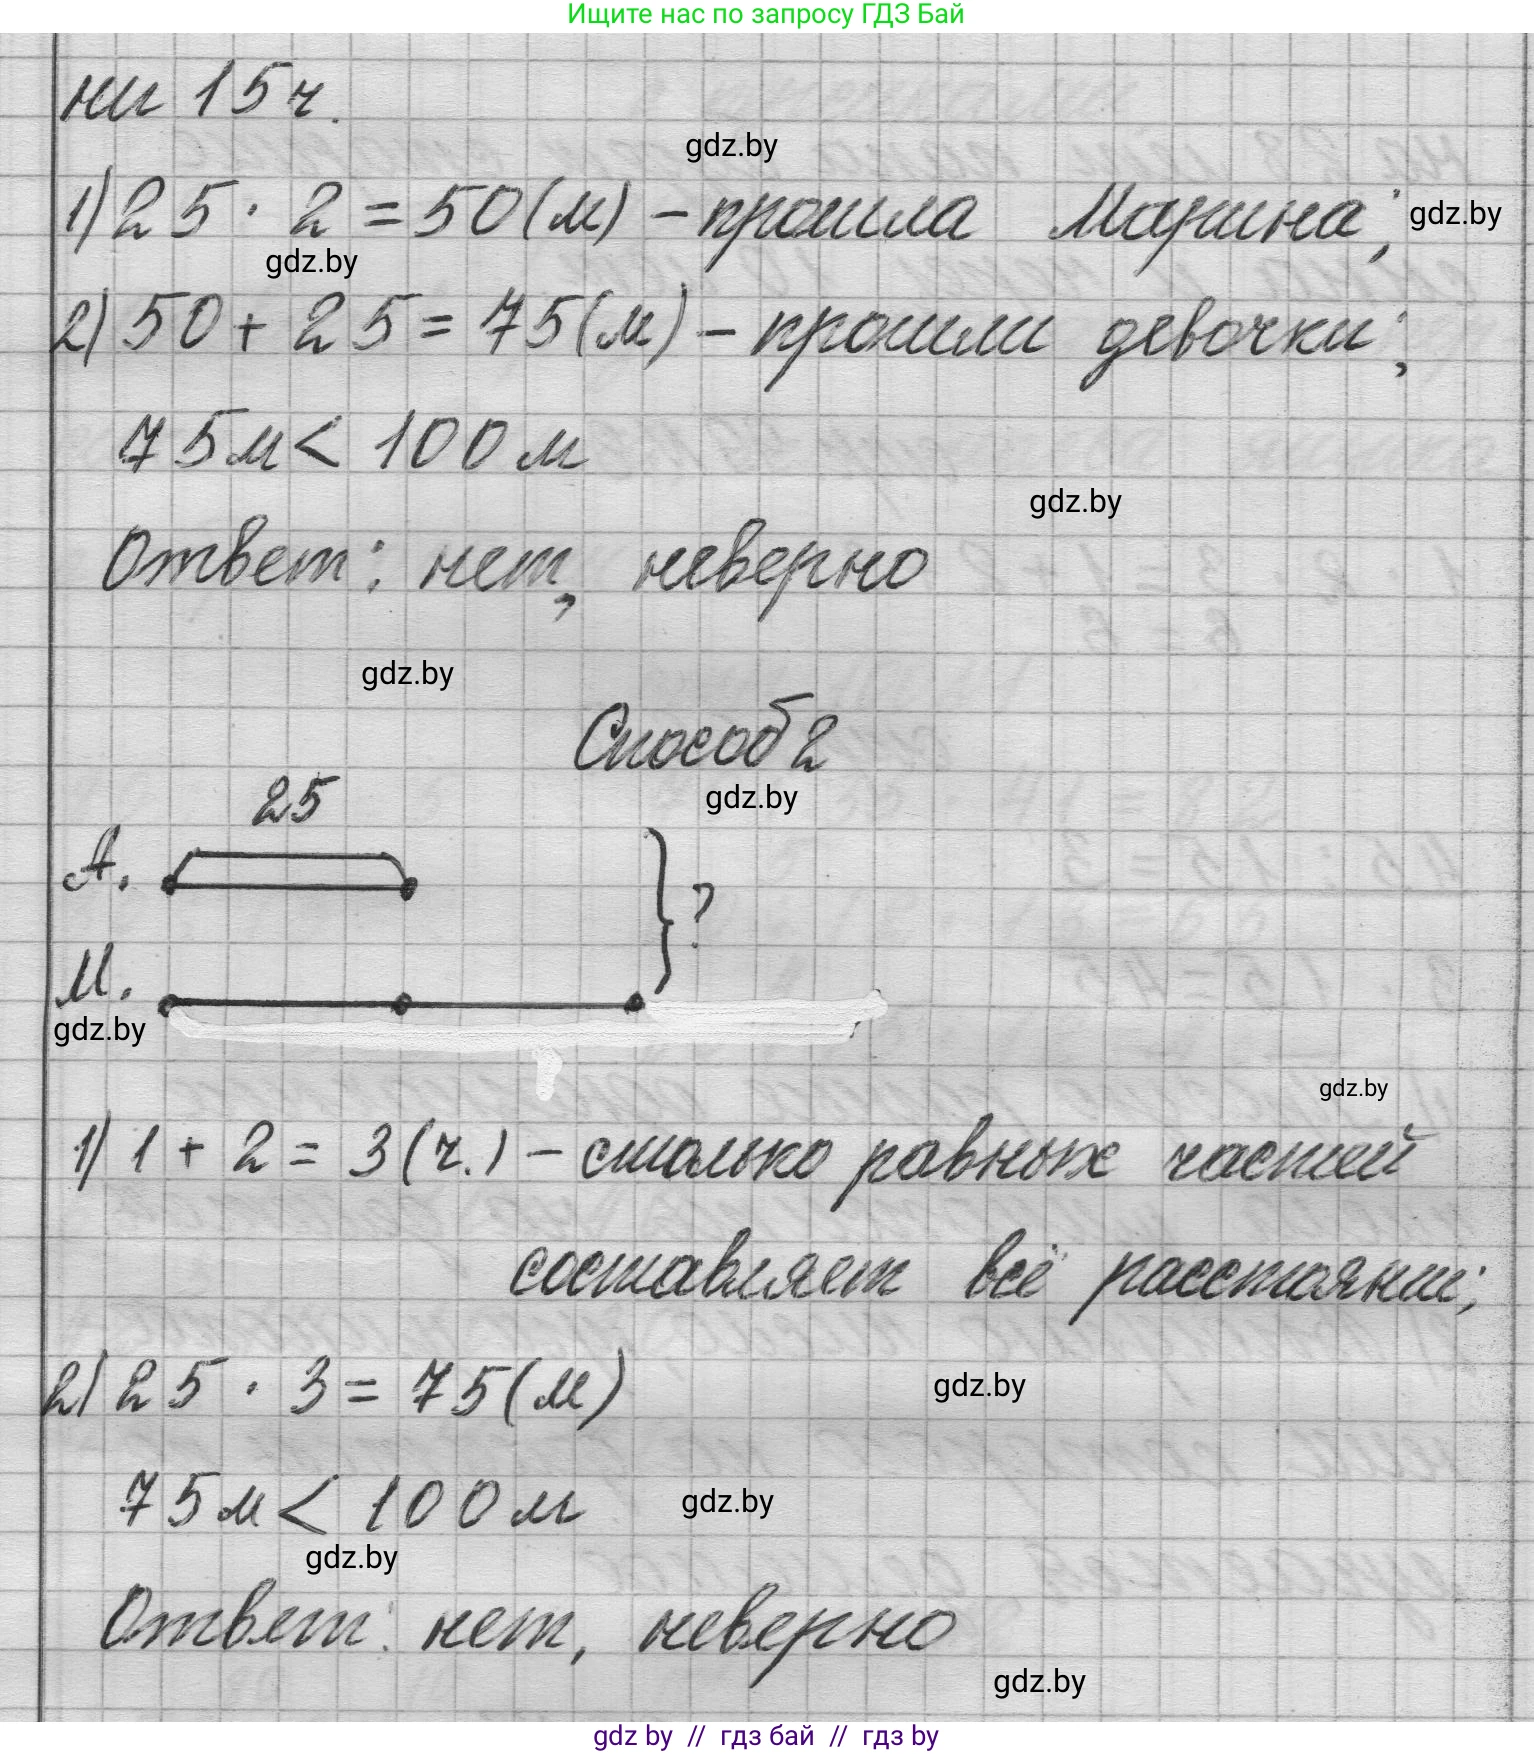 Ищите нас по запросу ГДЗ Бай
ни 15 ч.
gdz.by
1) 25 · 2 = 50 (м) – прошла Марина; gdz.by
gdz.by
2) 50 + 25 = 75 (м) – прошли девочки;
75 м < 100 м
gdz.by
Ответ: нет, неверно
gdz.by
Способ 2
gdz.by
25
А.
?
М.
gdz.by
gdz.by
1) 1 + 2 = 3 (ч.) – столько равных частей
составляет всё расстояни;
2) 25 · 3 = 75 (м)
gdz.by
75 м < 100 м
gdz.by
gdz.by
Ответ: нет, неверно
gdz.by
gdz by // гдз бай // гдз by